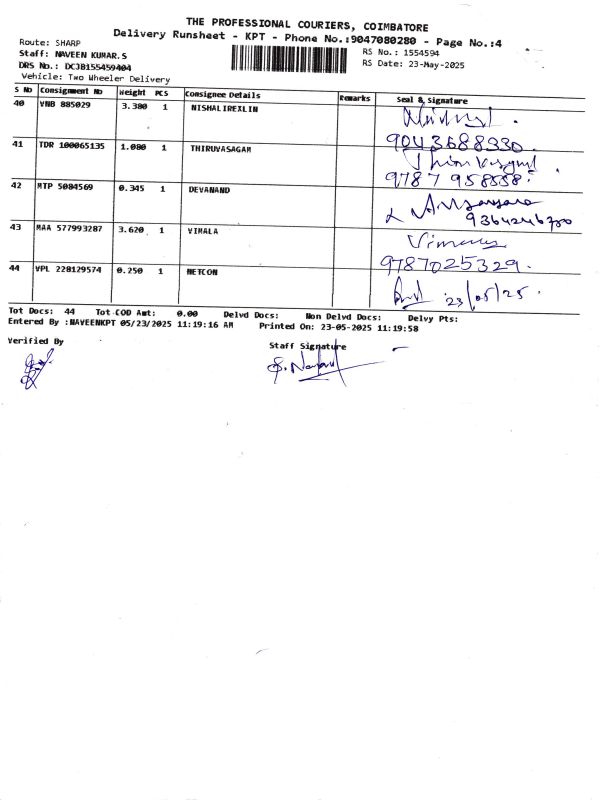 THE PROFESSIONAL COURIERS, COIMBATORE
Delivery Runsheet - KPT - Phone No.:9047080280 - Page No.:4
Route: SHARP
RS No.: 1554594
Staff: NAVEEN KUMAR.S
RS Date: 23-May-2025
DRS No.: DCJB155459404
Vehicle: Two Wheeler Delivery
S No Consignment No Weight PCS Consignee Details Remarks Seal & Signature
40 VNB 885029 3.380 1 NISHALIREXLIN
9043688330.
41 TDR 100065135 1.080 1 THIRUVASAGAM
9787 958558
42 MTP 5084569 0.345 1 DEVANAND
9364246780
43 MAA 577993287 3.620 1 VIMALA
Vimala
9787025329.
44 VPL 228129574 0.250 1 NETCON
23/05/25.
Tot Docs: 44 Tot COD Amt: 0.00 Delvd Docs: Non Delvd Docs: Delvy Pts:
Entered By :NAVEENKPT 05/23/2025 11:19:16 AM Printed On: 23-05-2025 11:19:58
Verified By
Staff Signature